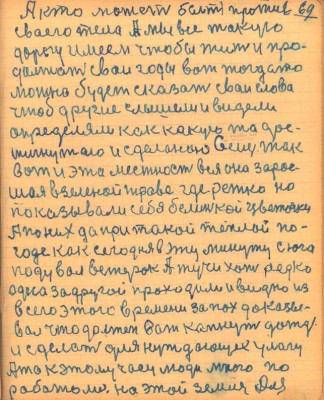 А кто может быть против 69
своего тела А мы все такую
дорогу имеем чтобы жит и про-
должат сваи годы вот тогда то
можно будет сказат сваи слова
чтоб другие слышели и видели
определяли как какую та дос-
и сделоною Если так
вот и эта местност вся она зарос-
шая взеленой траве где ретко но
показывали себя белинкой цветочки
А по них да при такой тёплой по-
годе как сегодня в эту минуту с юга
подувал ветерок А тучи хот редко
одна за другой проходили и видно из
всего этого времени запох доказы-
вал что должен вот капнут дождь
и сделат для нуждающих улагу
А так этому часу люди много по
работали на этой земля Для